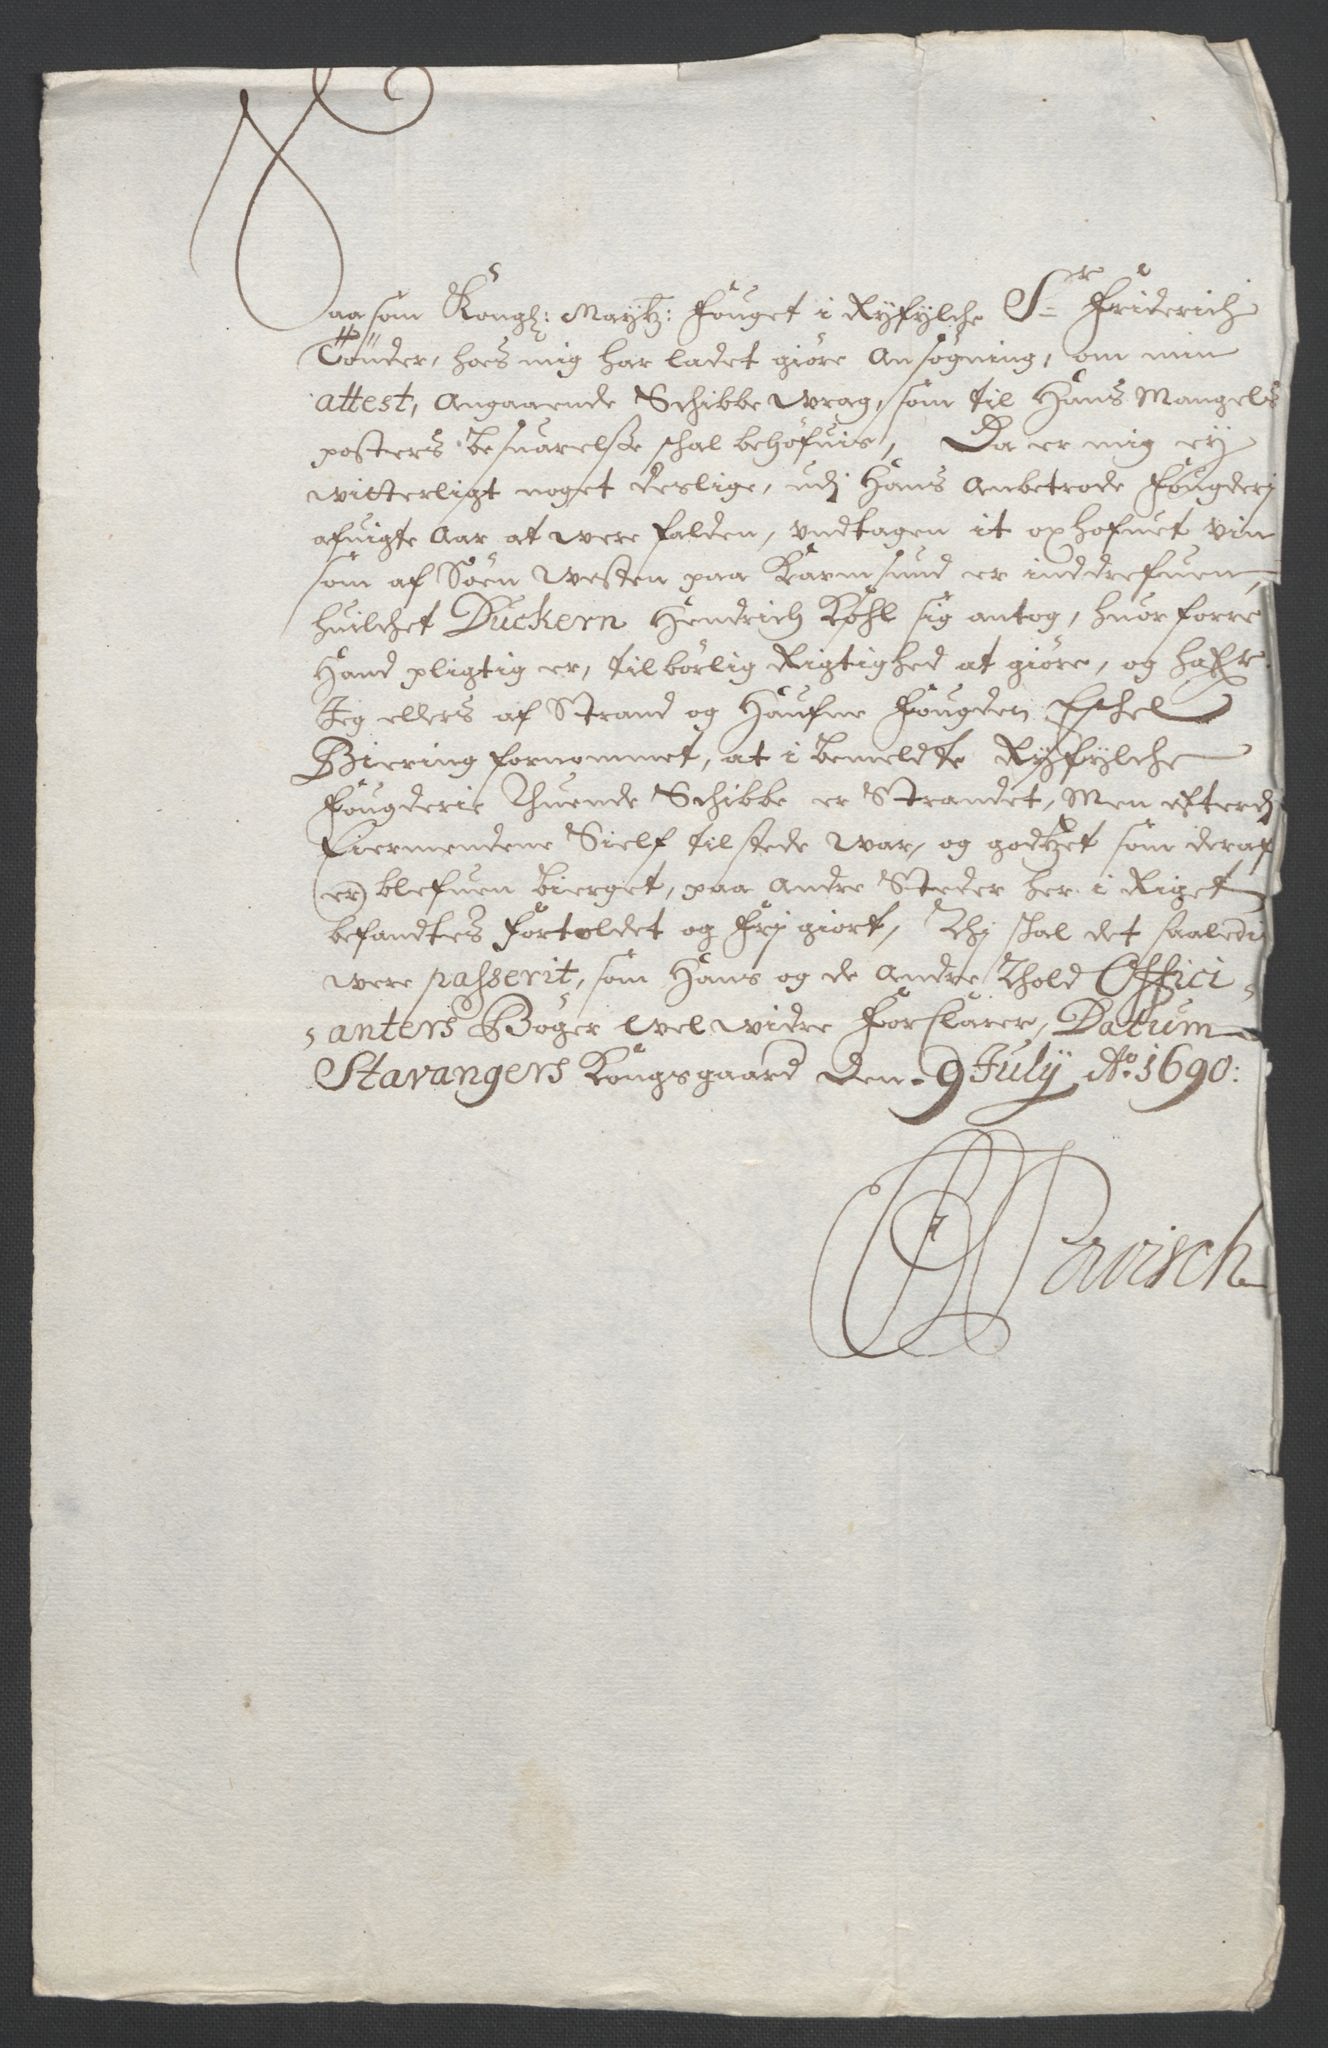 Saasom Kongl: Maytz: Fouget i Ryfylche Sr Friderich
Tönder, hoes mig har ladet giöre Ansögning, om min
attest, Angaaende Schibbe wrag, som til Hans Mangels
posters besuarelsse schal behöfuis, Da er mig ey
witterligt noget deslige, udj Hans Anbetrode Fougderj
afuigte Aar at were falden, vndtagen it ophofnet vin
som af Söen Westen paa Karmsund er inddrefuen,
huilchet Duckern Hendrich Kohl sig antog, huorforre
Hand pligtig er, tilbörlig Rigtighed at giöre, og hafr
Jeg ellers af Strand og Haufne Fougden Eschel
Biering fornommet, at i bemeldte Ryfylche
Fougderie Thuende Schibbe er Strandet, Men efterdj
Eiermendene Sielf tilstede war, og godtzet som deraf
(er) blefuen bierget, paa Andre Steder her i Riget
befandtes fortoldet og Frj giort, Thj schal det saaledi
were passerit, som Hans og de Andre Thold Offici
anters Böger wel widre Forclarer, Datum
Stavangers Kongsgaard Den 9 July Ao 1690: